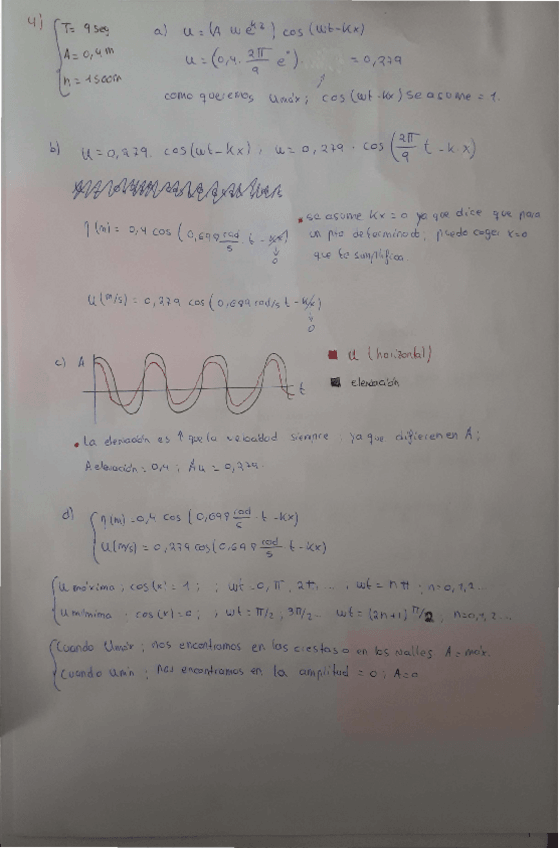 4)
T= 9 seg
A= 0,4 m
h = 1500m
a) u = (A w e^kz) cos (wt-kx)
u = (0,4 · 2π/9 e°) · = 0,279
como queremos umáx; cos(wt-kx) se asume = 1.
b) u = 0,279 · cos(wt-kx); u = 0,279 · cos(2π/9 t - k·x)
η(m) = 0,4 cos (0,698 rad/s · t - kx)
0
• se asume kx = 0 ya que dice que para
un pto determinado; puedo coger x=0
que te simplifica.
u(m/s) = 0,279 cos(0,698 rad/s t - kx)
0
c) A
t
u (horizontal)
elevación
• La elevación es ↑ que la velocidad siempre ya que difieren en A;
A elevación = 0,4 ; Au = 0,279.
d)
η(m) = 0,4 cos (0,698 rad/s · t - kx)
u(m/s) = 0,279 cos(0,698 rad/s · t - kx)
u máxima ; cos(x) = 1 ; ; wt = 0, π, 2π, ..., wt = nπ ; n=0,1,2...
u mínima ; cos(x) = 0 ; ; wt = π/2, 3π/2... wt = (2n+1) π/2 ; n=0,1,2...
Cuando Umáx ; nos encontramos en las crestas o en los valles A = máx.
Cuando Umín ; nos encontramos en la amplitud = 0 ; A=0